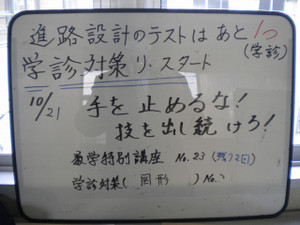 進路設計のテストは あと 1つ
(学診)
学診対策リ・スタート
10/21 手を止めるな!
技を出し続けろ!
数学特別講座 No.23 (残り2回)
学診対策( 図形 ) No.